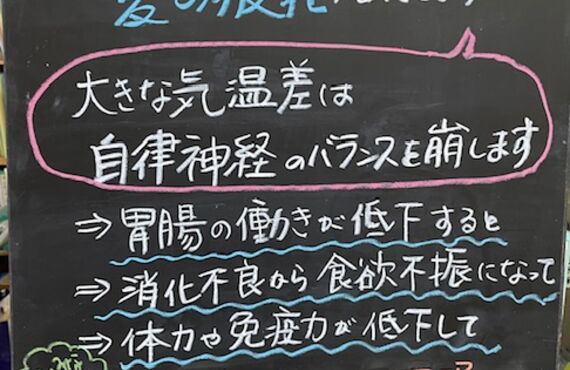 大きな気温差は
自律神経のバランスを崩します
⇒胃腸の働きが低下すると
⇒消化不良から食欲不振になって
⇒体力や免疫力が低下して